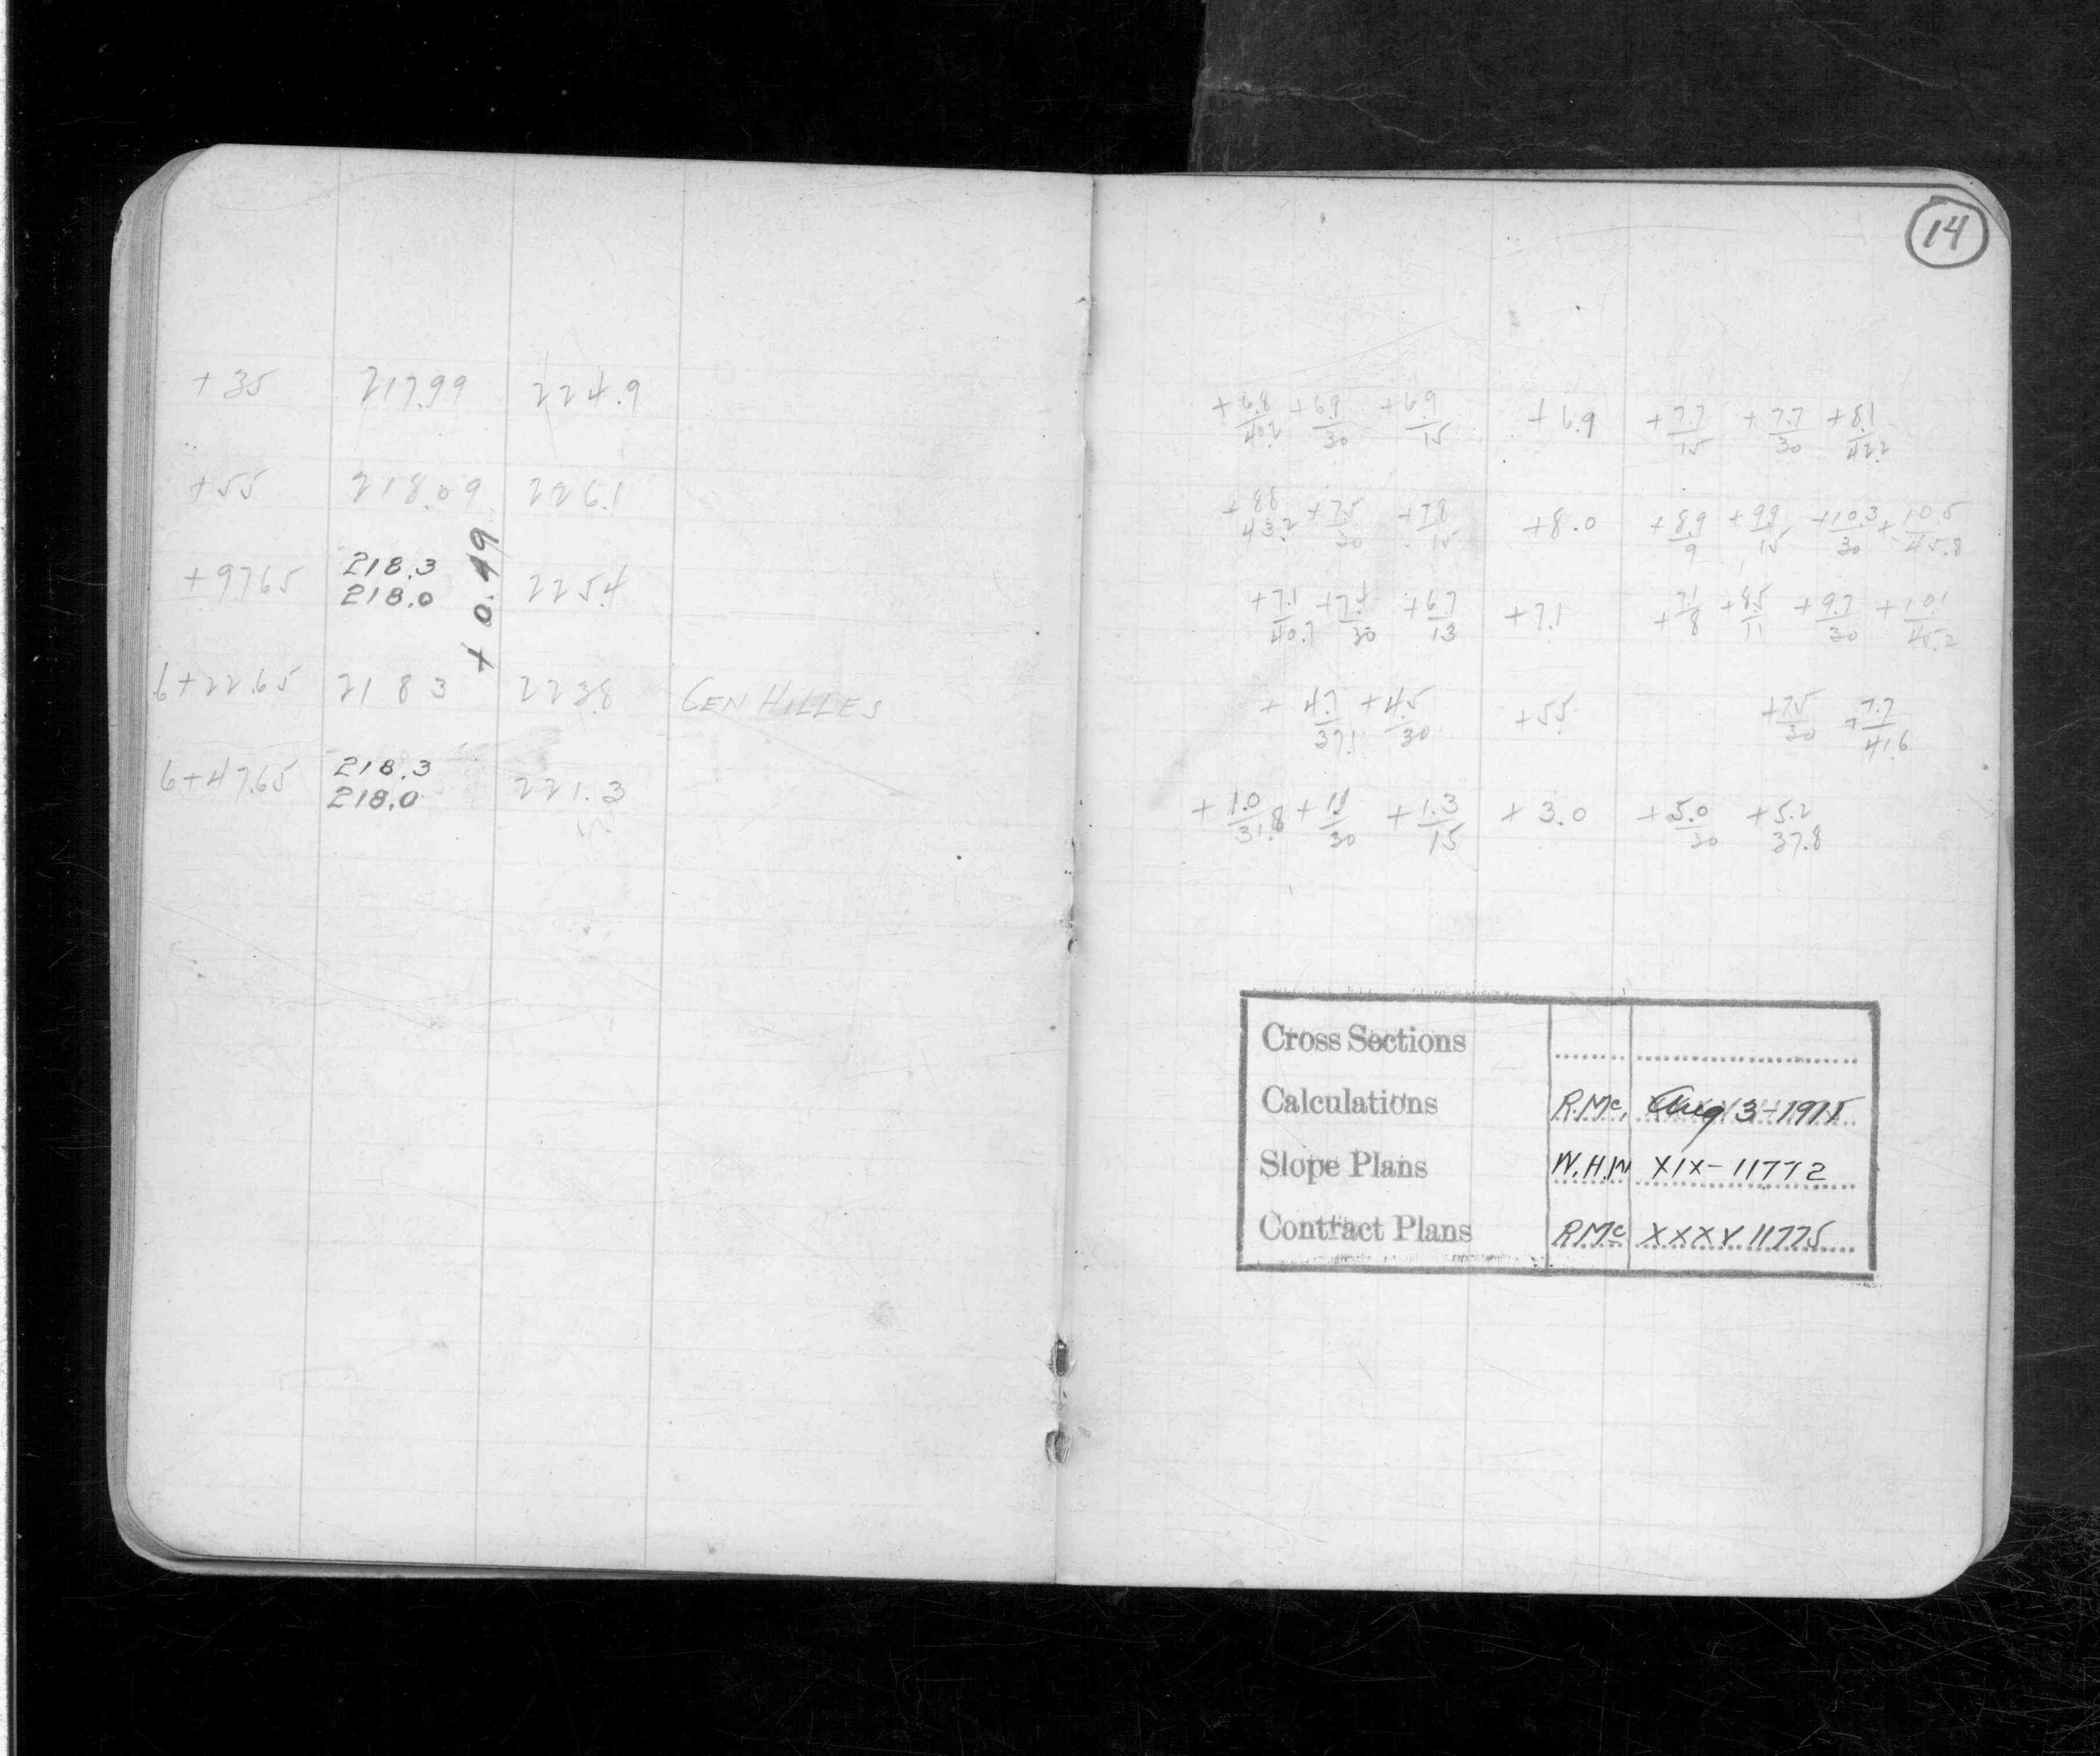 14
+35 217.99 224.9
+55 218.09 226.1
+97.65 218.3 225.4
218.0
+0.49
6+22.65 218.3 223.8 CEN HILLES
6+47.65 218.3 221.3
218.0
+6.8/40.2 +6.9/30 +6.9/15 +6.9 +7.7/15 +7.7/30 +8.1/42.2
+8.8/43.2 +7.5/30 +7.8/15 +8.0 +8.9/9 +9.9/15 +10.3/30 +10.5/45.8
+7.1/40.7 +7.4/30 +6.7/13 +7.1 +7.1/8 +8.5/11 +9.7/30 +10.1/45.2
+4.7/37.1 +4.5/30 +5.5 +7.5/30 +7.7/41.6
+1.0/31.8 +1.1/30 +1.3/15 +3.0 +5.0/30 +5.2/37.8
Cross Sections
Calculations R.Mc. Aug 3-1911
Slope Plans W.H.M XIX-11772
Contract Plans RMc XXXV 11775